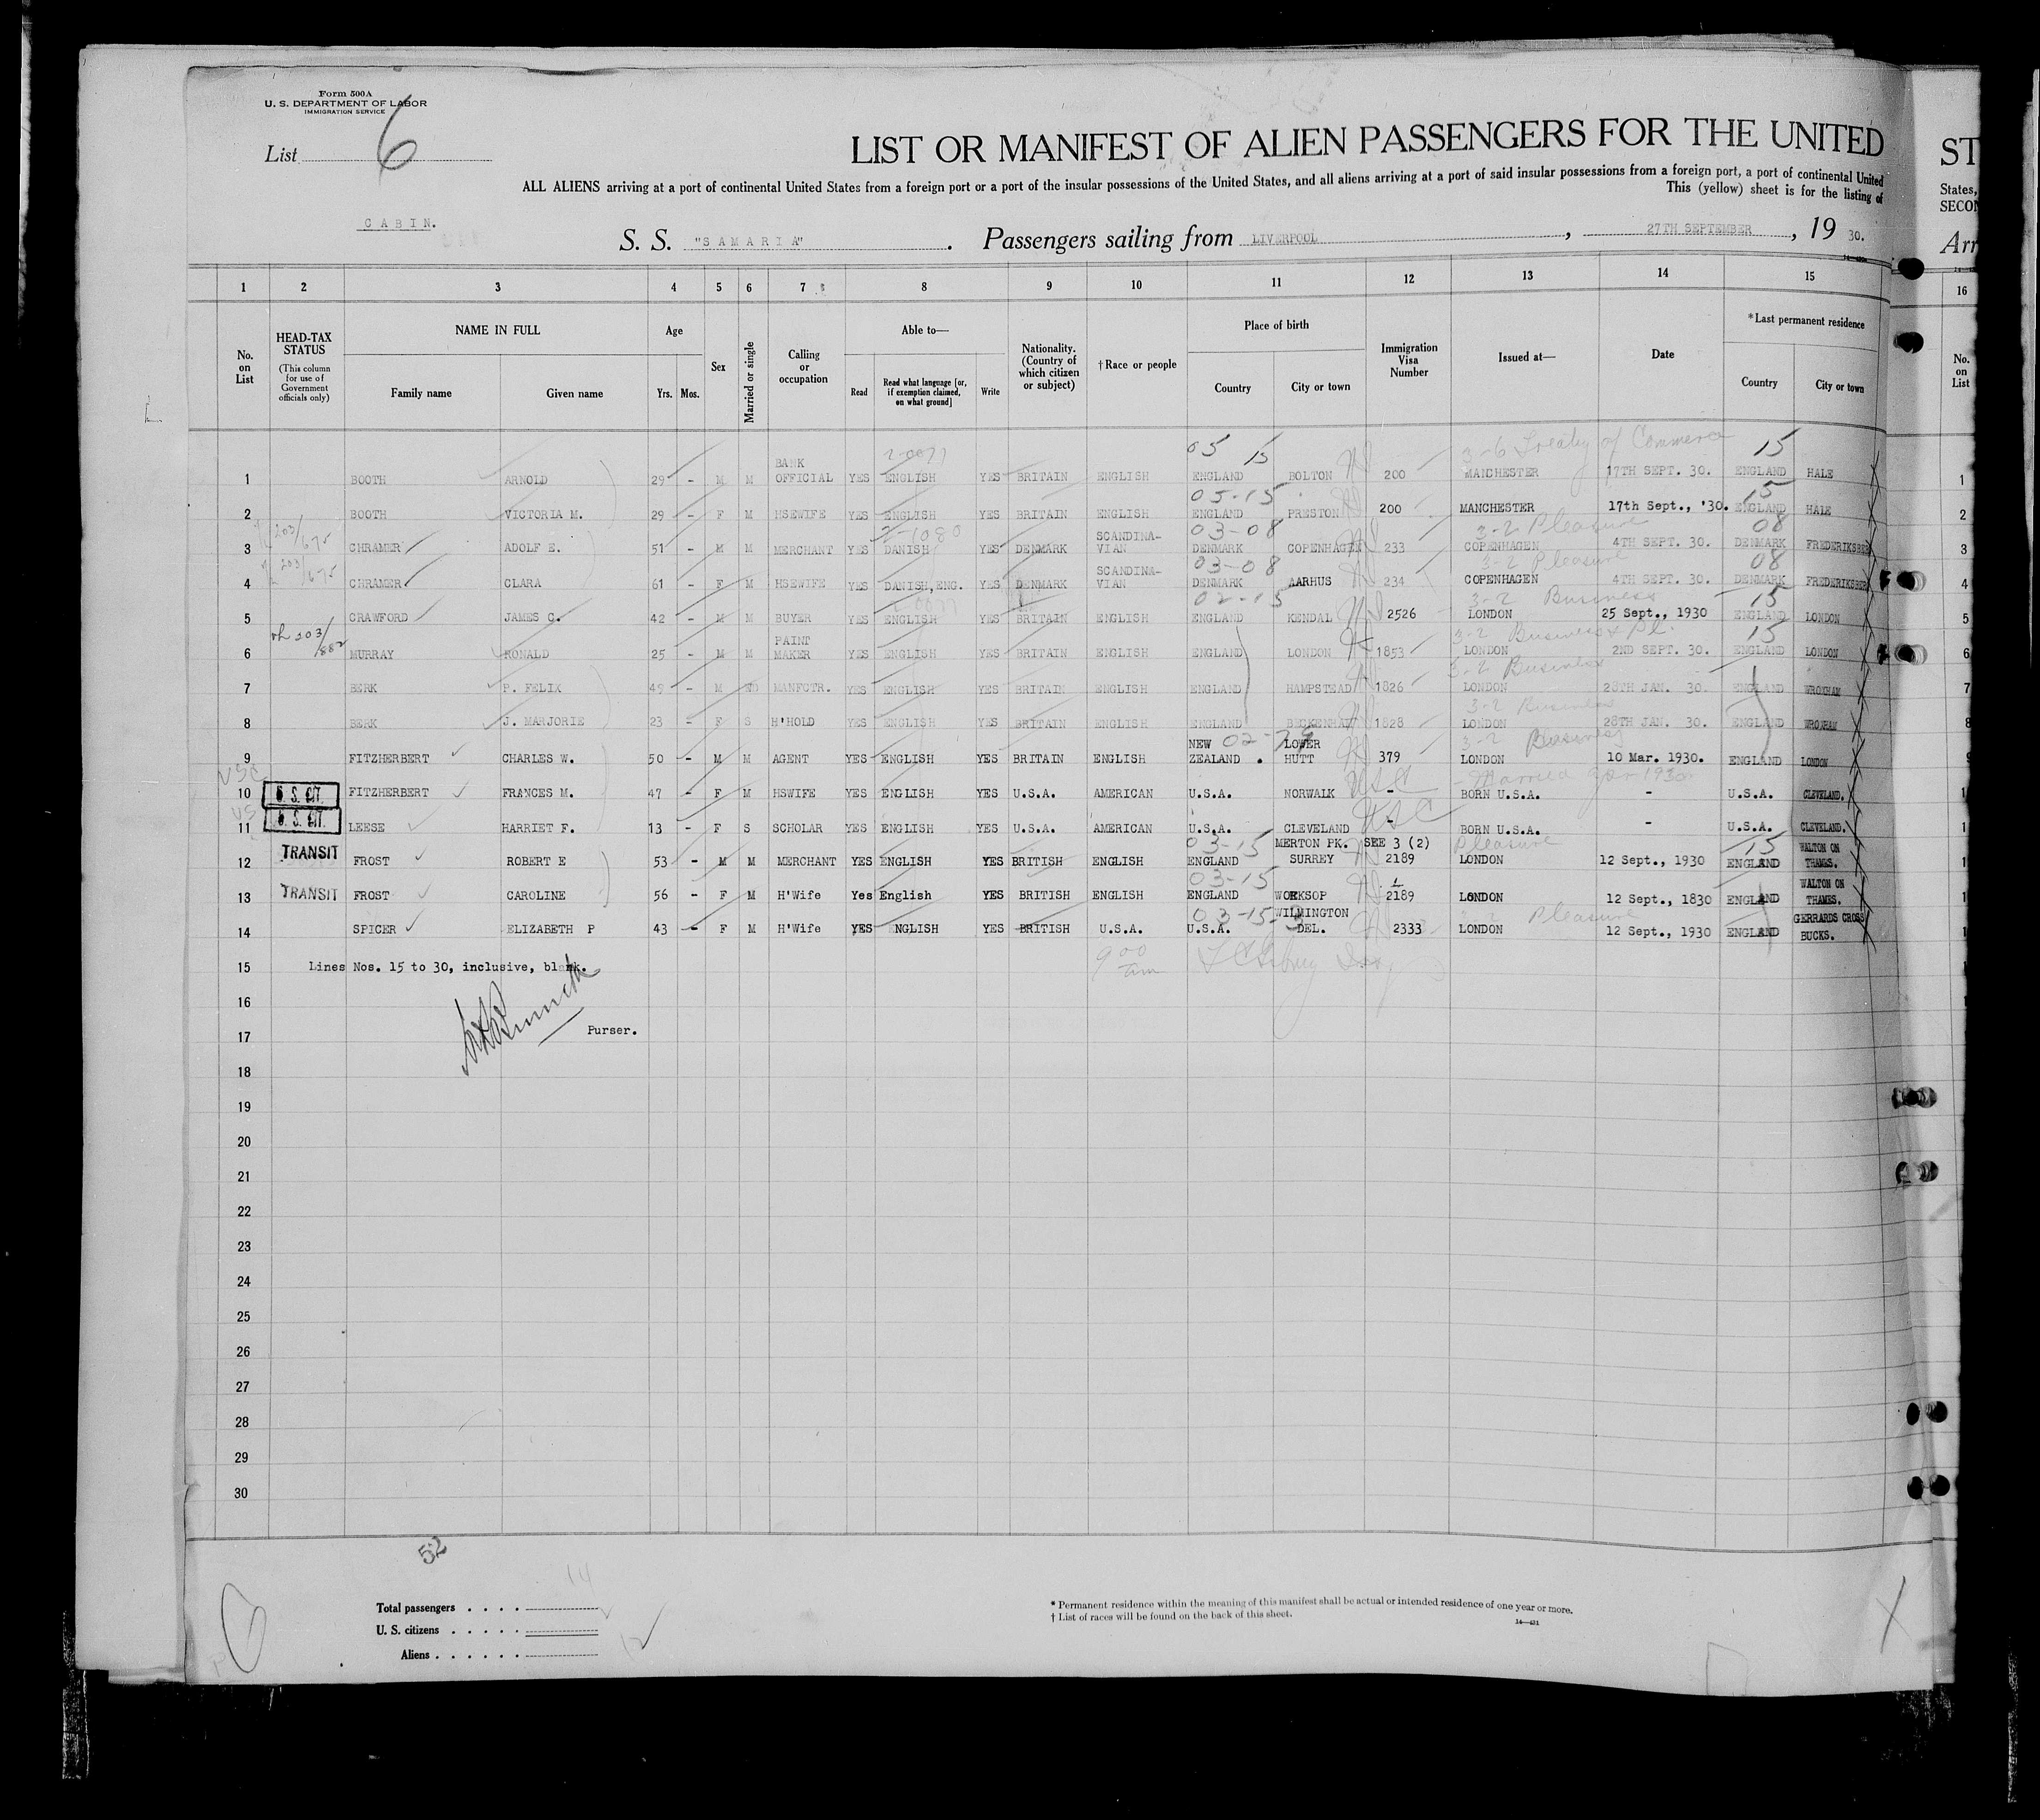 Form 500A
U. S. DEPARTMENT OF LABOR
IMMIGRATION SERVICE
List 6
LIST OR MANIFEST OF ALIEN PASSENGERS FOR THE UNITED
ST
ALL ALIENS arriving at a port of continental United States from a foreign port or a port of the insular possessions of the United States, and all aliens arriving at a port of said insular possessions from a foreign port, a port of continental United
States,
This (yellow) sheet is for the listing of
SECON
CABIN.
S. S. "SAMARIA". Passengers sailing from LIVERPOOL, 27TH SEPTEMBER, 19 30.
Arr
1 2 3 4 5 6 7 8 9 10 11 12 13 14 15 16
No. on List
HEAD-TAX STATUS
(This column for use of Government officials only)
NAME IN FULL
Family name Given name
Age
Yrs. Mos.
Sex
Married or single
Calling or occupation
Able to—
Read
Read what language [or, if exemption claimed, on what ground]
Write
Nationality. (Country of which citizen or subject)
† Race or people
Place of birth
Country City or town
Immigration Visa Number
Issued at—
Date
* Last permanent residence
Country City or town
No. on List
05 15 3-6 Treaty of Commerce 15
1 BOOTH ARNOLD 29 - M M BANK OFFICIAL YES ENGLISH YES BRITAIN ENGLISH ENGLAND BOLTON 200 MANCHESTER 17TH SEPT. 30. ENGLAND HALE 1
05-15 15
2 BOOTH VICTORIA M. 29 - F M HSEWIFE YES ENGLISH YES BRITAIN ENGLISH ENGLAND PRESTON 200 MANCHESTER 17th Sept., '30. ENGLAND HALE 2
203/675 2-1080 03-08 3-2 Pleasure 08
3 CHRAMER ADOLF E. 51 - M M MERCHANT YES DANISH YES DENMARK SCANDINA-VIAN DENMARK COPENHAGEN 233 COPENHAGEN 4TH SEPT. 30. DENMARK FREDERIKSBER 3
203/675 03-08 3-2 Pleasure 08
4 CHRAMER CLARA 61 - F M HSEWIFE YES DANISH,ENG. YES DENMARK SCANDINA-VIAN DENMARK AARHUS 234 COPENHAGEN 4TH SEPT. 30. DENMARK FREDERIKSBER 4
02-15 3-2 Business 15
5 CRAWFORD JAMES C. 42 - M M BUYER YES ENGLISH YES BRITAIN ENGLISH ENGLAND KENDAL 2526 LONDON 25 Sept., 1930 ENGLAND LONDON 5
203/882 3-2 Business & Pl. 15
6 MURRAY RONALD 25 - M M PAINT MAKER YES ENGLISH YES BRITAIN ENGLISH ENGLAND LONDON 1853 LONDON 2ND SEPT. 30. ENGLAND LONDON 6
3-2 Business
7 BERK P. FELIX 49 - M YES MANFCTR. YES ENGLISH YES BRITAIN ENGLISH ENGLAND HAMPSTEAD 1826 LONDON 28TH JAN. 30. ENGLAND WROXHAM 7
3-2 Business
8 BERK J. MARJORIE 23 - F S H'HOLD YES ENGLISH YES BRITAIN ENGLISH ENGLAND BECKENHAM 1828 LONDON 28TH JAN. 30. ENGLAND WROXHAM 8
3-2 Business
9 FITZHERBERT CHARLES W. 50 - M M AGENT YES ENGLISH YES BRITAIN ENGLISH NEW ZEALAND . LOWER HUTT 379 LONDON 10 Mar. 1930. ENGLAND LONDON 9
USC Married
10 U. S. CIT. FITZHERBERT FRANCES M. 47 - F M HSWIFE YES ENGLISH YES U.S.A. AMERICAN U.S.A. NORWALK - BORN U.S.A. - U.S.A. CLEVELAND.
USC
11 U. S. CIT. LEESE HARRIET F. 13 - F S SCHOLAR YES ENGLISH YES U.S.A. AMERICAN U.S.A. CLEVELAND BORN U.S.A. - U.S.A. CLEVELAND.
03-15 Pleasure 15
12 TRANSIT FROST ROBERT E 53 - M M MERCHANT YES ENGLISH YES BRITISH ENGLISH ENGLAND MERTON PK. SURREY SEE 3 (2) 2189 LONDON 12 Sept., 1930 ENGLAND WALTON ON THAMES.
03-15
13 TRANSIT FROST CAROLINE 56 - F M H'Wife Yes English YES BRITISH ENGLISH ENGLAND WORKSOP 2189 LONDON 12 Sept., 1830 ENGLAND WALTON ON THAMES.
03-15 3-2 Pleasure
14 SPICER ELIZABETH P 43 - F M H'Wife YES ENGLISH YES BRITISH U.S.A. U.S.A. WILMINGTON DEL. 2333 LONDON 12 Sept., 1930 ENGLAND GERRARDS CROSS BUCKS.
15 Lines Nos. 15 to 30, inclusive, blank.
900 am
16
17 Purser.
18
19
20
21
22
23
24
25
26
27
28
29
30
52
14
Total passengers . . . .
U. S. citizens . . . . .
12
Aliens . . . . . .
* Permanent residence within the meaning of this manifest shall be actual or intended residence of one year or more.
† List of races will be found on the back of this sheet.